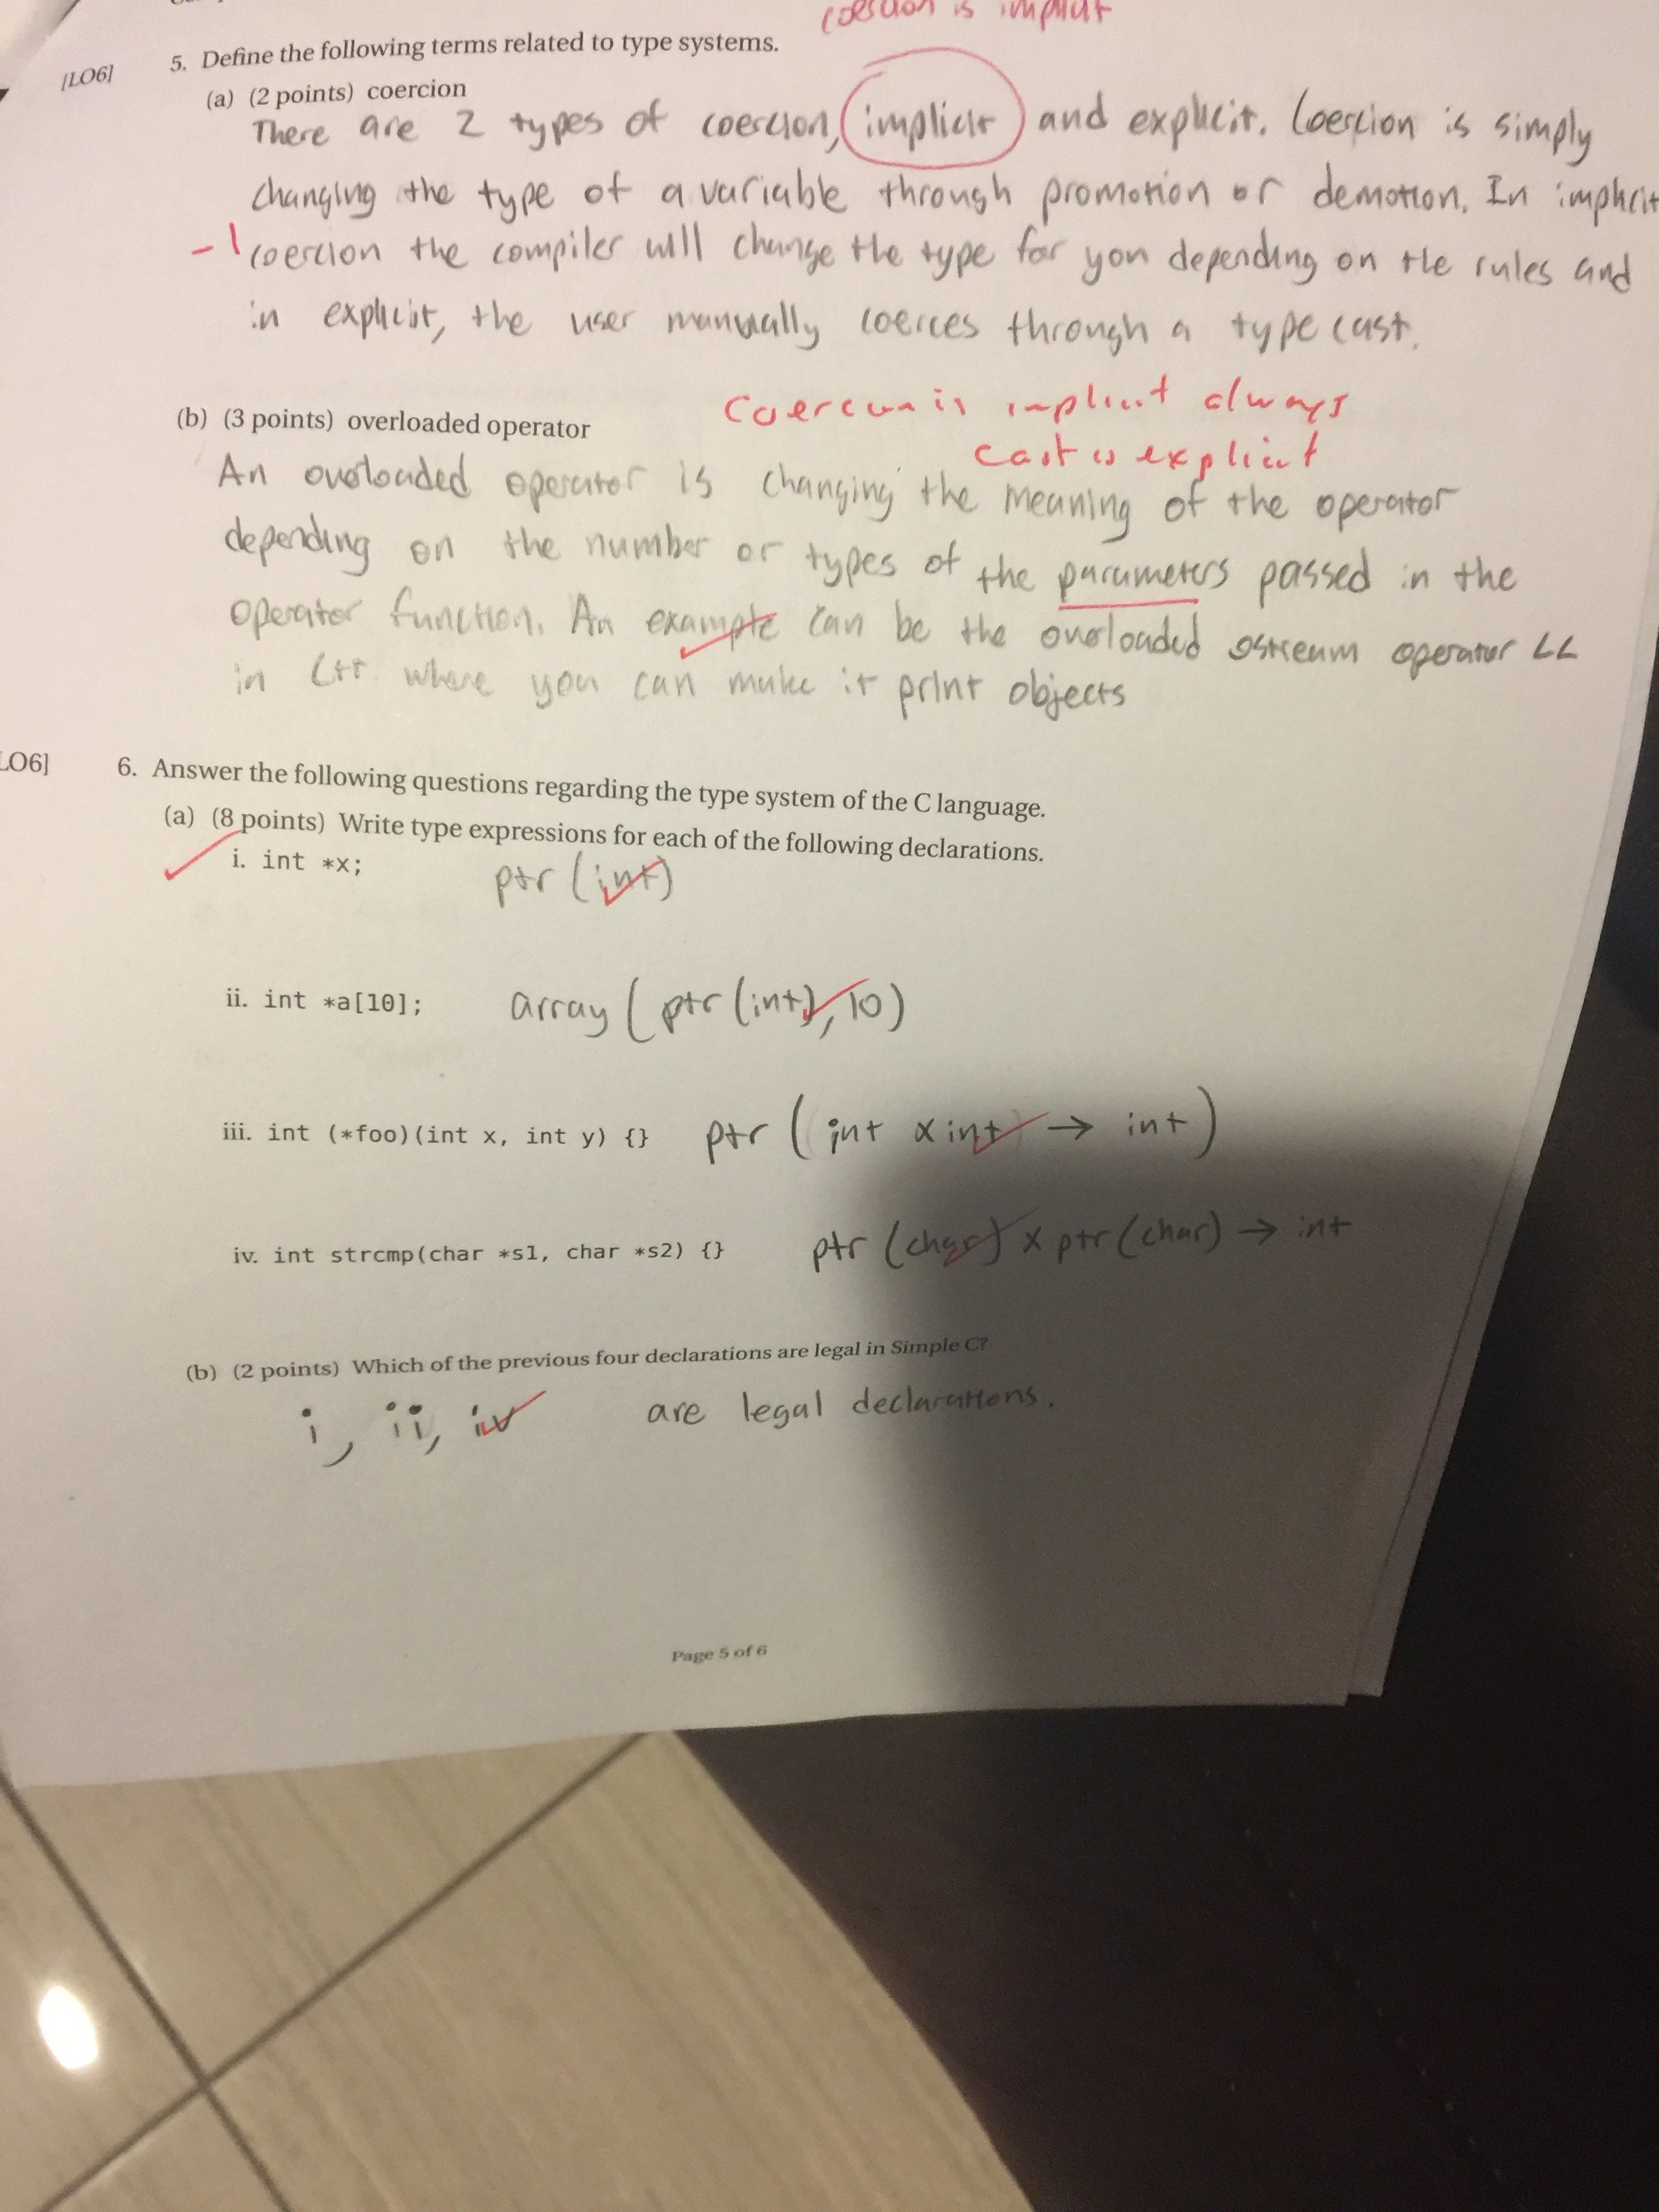 coercion is implicit
[LO6] 5. Define the following terms related to type systems.
(a) (2 points) coercion
There are 2 types of coercion, implicit and explicit. Coercion is simply
changing the type of a variable through promotion or demotion. In implicit
-1 coercion the compiler will change the type for you depending on the rules and
in explicit, the user manually coerces through a type cast.
coercion is implicit always
cast is explicit
(b) (3 points) overloaded operator
An overloaded operator is changing the meaning of the operator
depending on the number or types of the parameters passed in the
operator function. An example can be the overloaded ostream operator <<
in C++ where you can make it print objects
LO6] 6. Answer the following questions regarding the type system of the C language.
(a) (8 points) Write type expressions for each of the following declarations.
i. int *x; ptr (int)
ii. int *a[10]; array ( ptr (int), 10)
iii. int (*foo)(int x, int y) {} ptr ( int x int → int )
iv. int strcmp(char *s1, char *s2) {} ptr (char) x ptr (char) → int
(b) (2 points) Which of the previous four declarations are legal in Simple C?
i, ii, iv are legal declarations.
Page 5 of 6